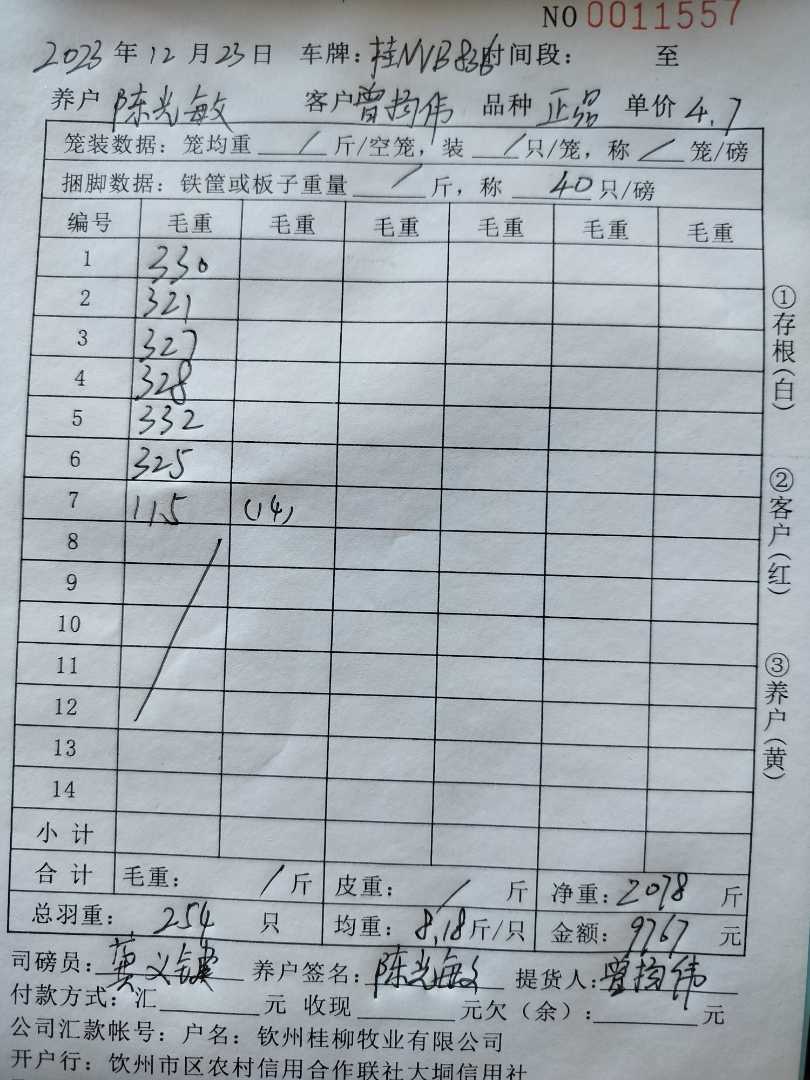 NO 0011557
2023 年 12 月 23 日 车牌：桂NVB836 时间段： 至
养户 陈光敏 客户 曾扬伟 品种 正品 单价 4.7
笼装数据：笼均重 / 斤/空笼，装 / 只/笼，称 / 笼/磅
捆脚数据：铁筐或板子重量 / 斤，称 40 只/磅
编号 毛重 毛重 毛重 毛重 毛重 毛重
1 330
2 321
3 327
4 328
5 332
6 325
7 115 (14)
8
9
10
11
12
13
14
小 计
合 计 毛重： / 斤 皮重： / 斤 净重：2078 斤
总羽重： 254 只 均重：8.18 斤/只 金额：9767 元
司磅员： 养户签名：陈光敏 提货人：曾扬伟
付款方式：汇 元 收现 元欠（余）： 元
公司汇款帐号：户名：钦州桂柳牧业有限公司
开户行：钦州市区农村信用合作联社大垌信用社
①存根（白）
②客户（红）
③养户（黄）